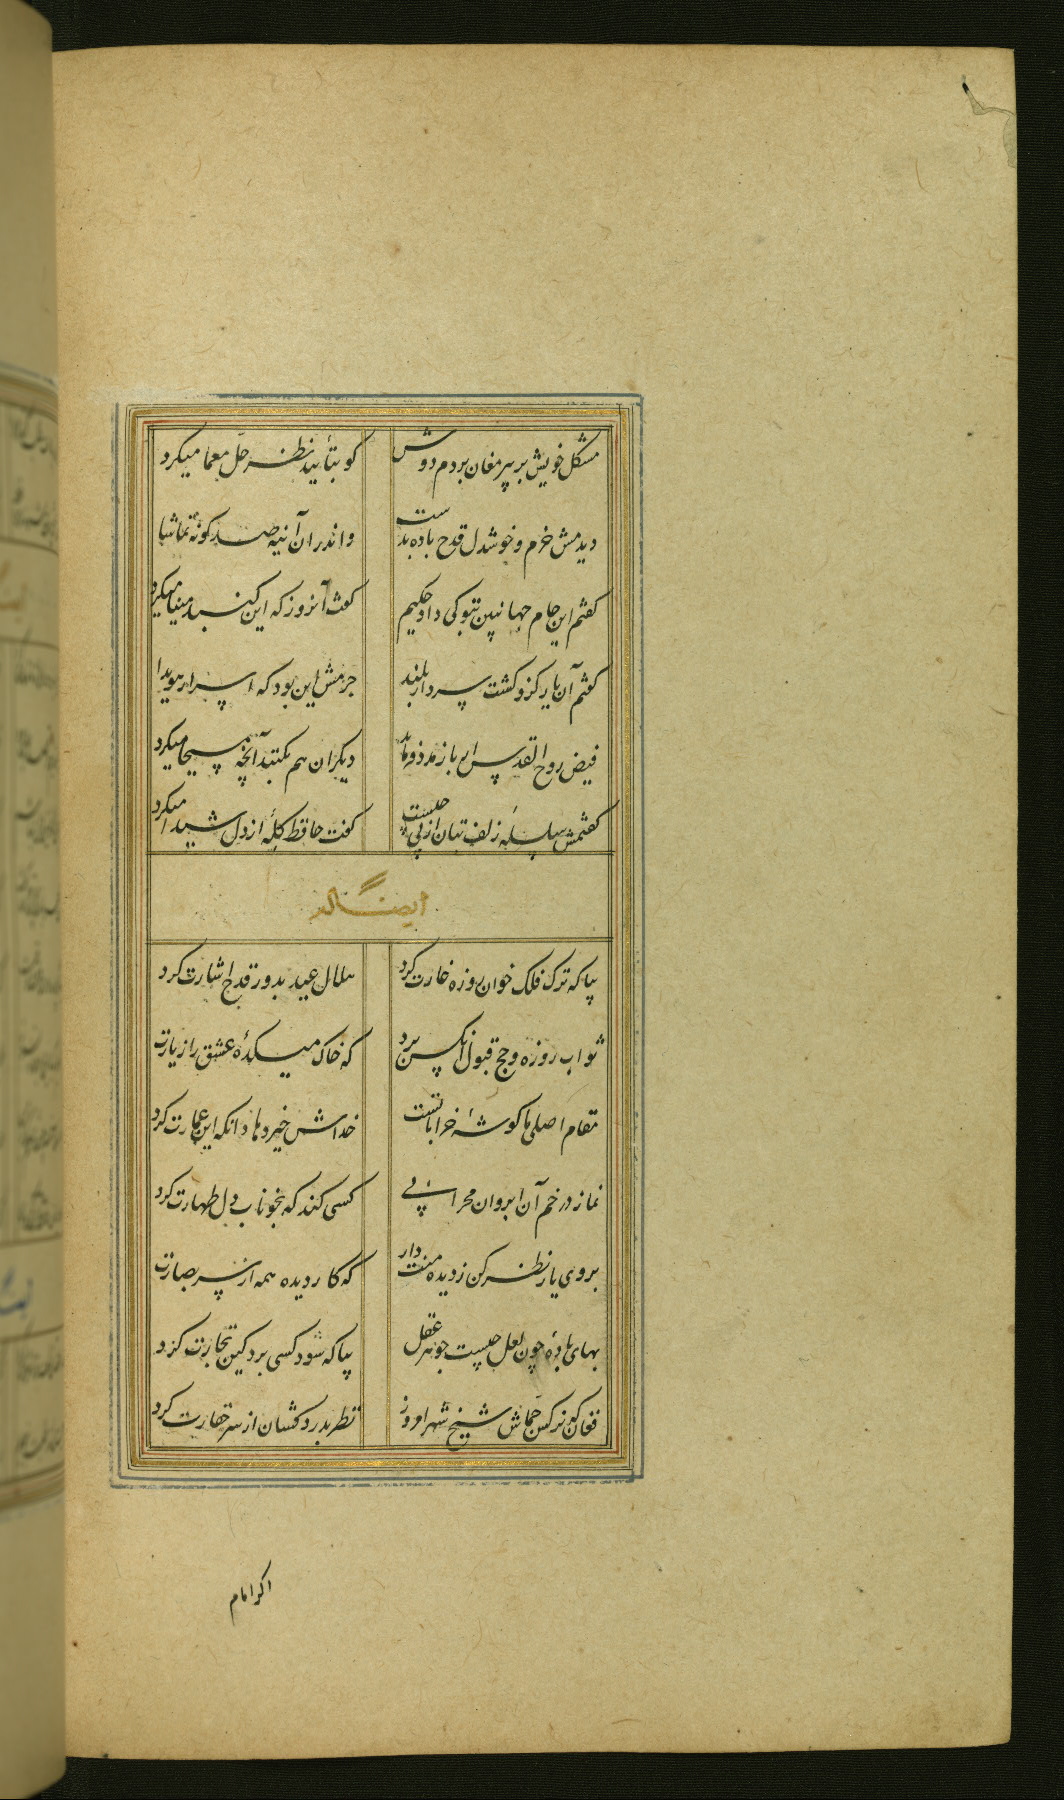 مشکل خویش بر پیر مغان بردم دوش کو بتأیید نظر حل معما میکرد
دیدمش خرم و خوشدل قدح باده بدست واندران آینه صد کونه تماشا
کفتم این جام جهانبین بتو کی داد حکیم کفت آنروز که این کنبد مینا میکرد
کفتم آن یار کزو کشت سر دار بلند جرمش این بود که اسرار هویدا
فیض روح القدس ار باز مدد فرماید دیکران هم بکنند آنچه مسیحا میکرد
کفتمش سلسلهٔ زلف بتان از پی چیست کفت حافظ کلهٔ از دل شیدا میکرد
ایضاً له
بیا که ترک فلک خوان روزه غارت کرد هلال عید بدور قدح اشارت کرد
ثواب روزه و حج قبول انکس برد که خاک میکدهٔ عشق را زیارت
مقام اصلی ما کوشهٔ خراباتست خداش خیر دهاد انکه این عمارت کرد
نماز در خم آن ابروان محرابی کسی کند که بخوناب دل طهارت کرد
بروی یار نظر کن ز دیده منت دار که کار دیده همه از سر بصارت
بهای بادهٔ چون لعل چیست جوهر عقل بیا که سود کسی برد کین تجارت کرد
فغان که نرکس جماش شیخ شهر امروز نظر بدردکشان از سر حقارت کرد
اکر امام